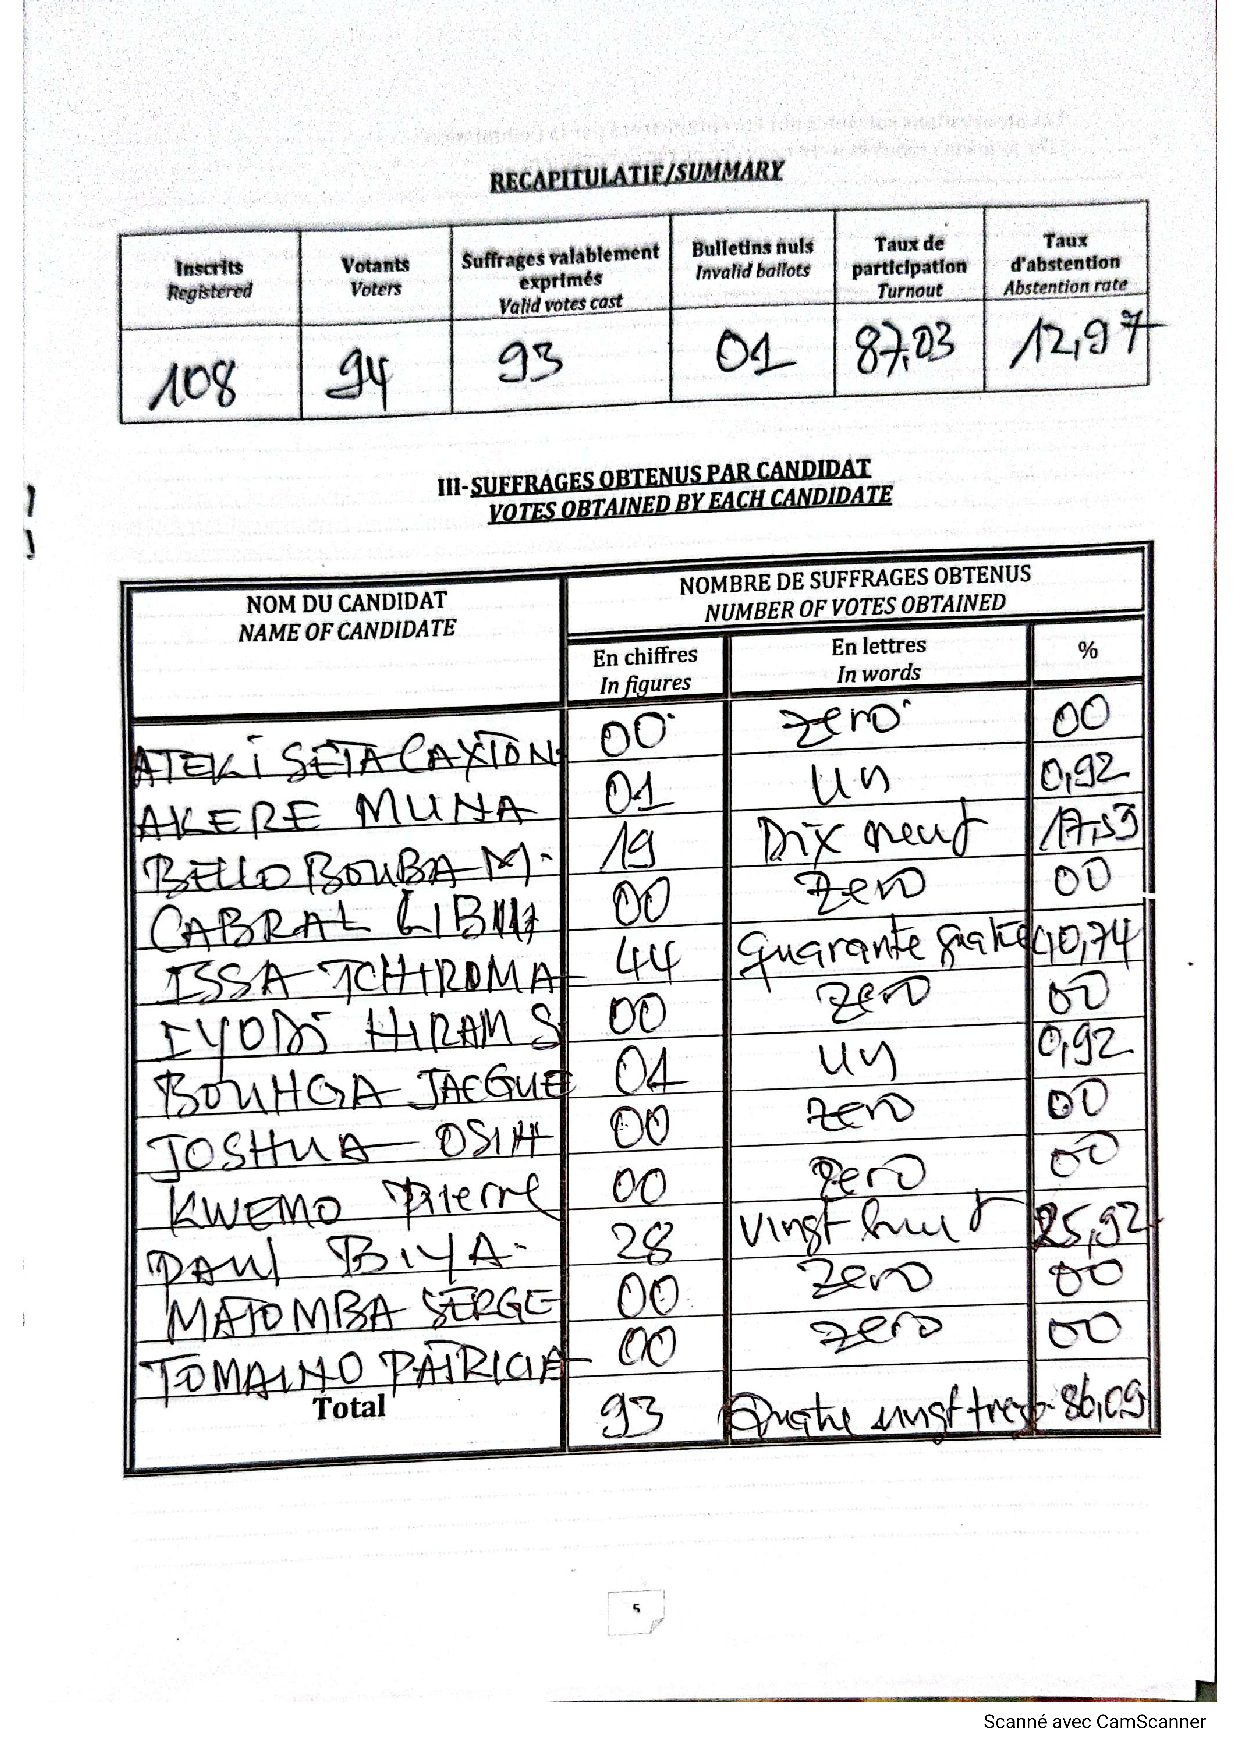 RECAPITULATIF/SUMMARY
Inscrits Registered | Votants Voters | Suffrages valablement exprimés Valid votes cast | Bulletins nuls Invalid ballots | Taux de participation Turnout | Taux d'abstention Abstention rate
108 | 94 | 93 | 01 | 87,03 | 12,97
III-SUFFRAGES OBTENUS PAR CANDIDAT
VOTES OBTAINED BY EACH CANDIDATE
NOM DU CANDIDAT NAME OF CANDIDATE | NOMBRE DE SUFFRAGES OBTENUS NUMBER OF VOTES OBTAINED
En chiffres In figures | En lettres In words | %
ATEKI SETA CAXTON | 00 | zero | 00
AKERE MUNA | 01 | un | 0,92
BELLO BOUBA M. | 19 | Dix neuf | 17,59
CABRAL LIBII | 00 | zero | 00
ISSA TCHIROMA | 44 | quarante quatre | 40,74
IYODI HIRAM S | 00 | zero | 00
BOUHGA JACGUE | 01 | un | 0,92
JOSHUA OSIH | 00 | zero | 00
KWEMO Pierre | 00 | zero | 00
PAUL BIYA | 28 | vingt huit | 25,92
MATOMBA SERGE | 00 | zero | 00
TOMAINO PATRICIA | 00 | zero | 00
Total | 93 | Quatre vingt treize | 86,09
5
Scanné avec CamScanner